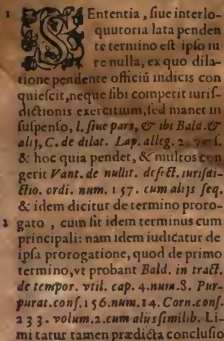 1 SEntentia, siue interlo-
quutoria lata penden
te termino est ipso iu
re nulla, ex quo dila-
tione pendente officiũ iudicis con
quiescit, neque sibi competit iuris-
dictionis exercitium, sed manet in
suspenso, l. siue pars, & ibi Bald. &
alij, C. de dilat. Lap. alleg.
& hoc quia pendet, & multos con
gerit Vant. de nullit. defect. iurisdi-
ctio. ordi. num. 157. cum alijs seq.
& idem dicitur de termino proro-
2 gato, cum sit idem terminus cum
principali: nam idem iudicatur de
ipsa prorogatione, quod de primo
termino, vt probant Bald. in tract.
de tempor. vtil. cap. 4. num. 8. Pur-
purat. conf. 156. num. 14. Corn. conf.
233. volum. 2. cum alijs similib. Li-
mitatur tamen prædicta conclusio